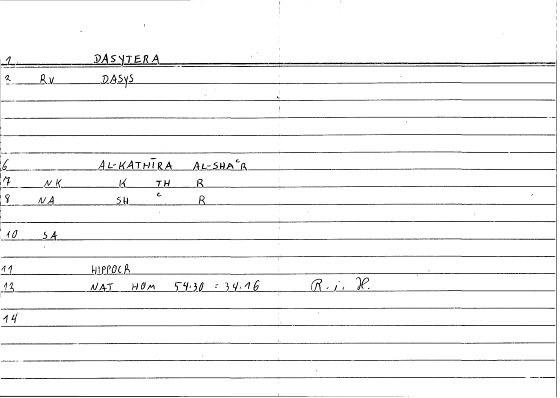 1 DASYTERA
2 RV DASYS
6 AL-KATHĪRA AL-SHAᶜR
7 NK K TH R
8 NA SH ᶜ R
10 SA
11 HIPPOCR
13 NAT HOM 54.30 = 34.16 R. i. H.
14